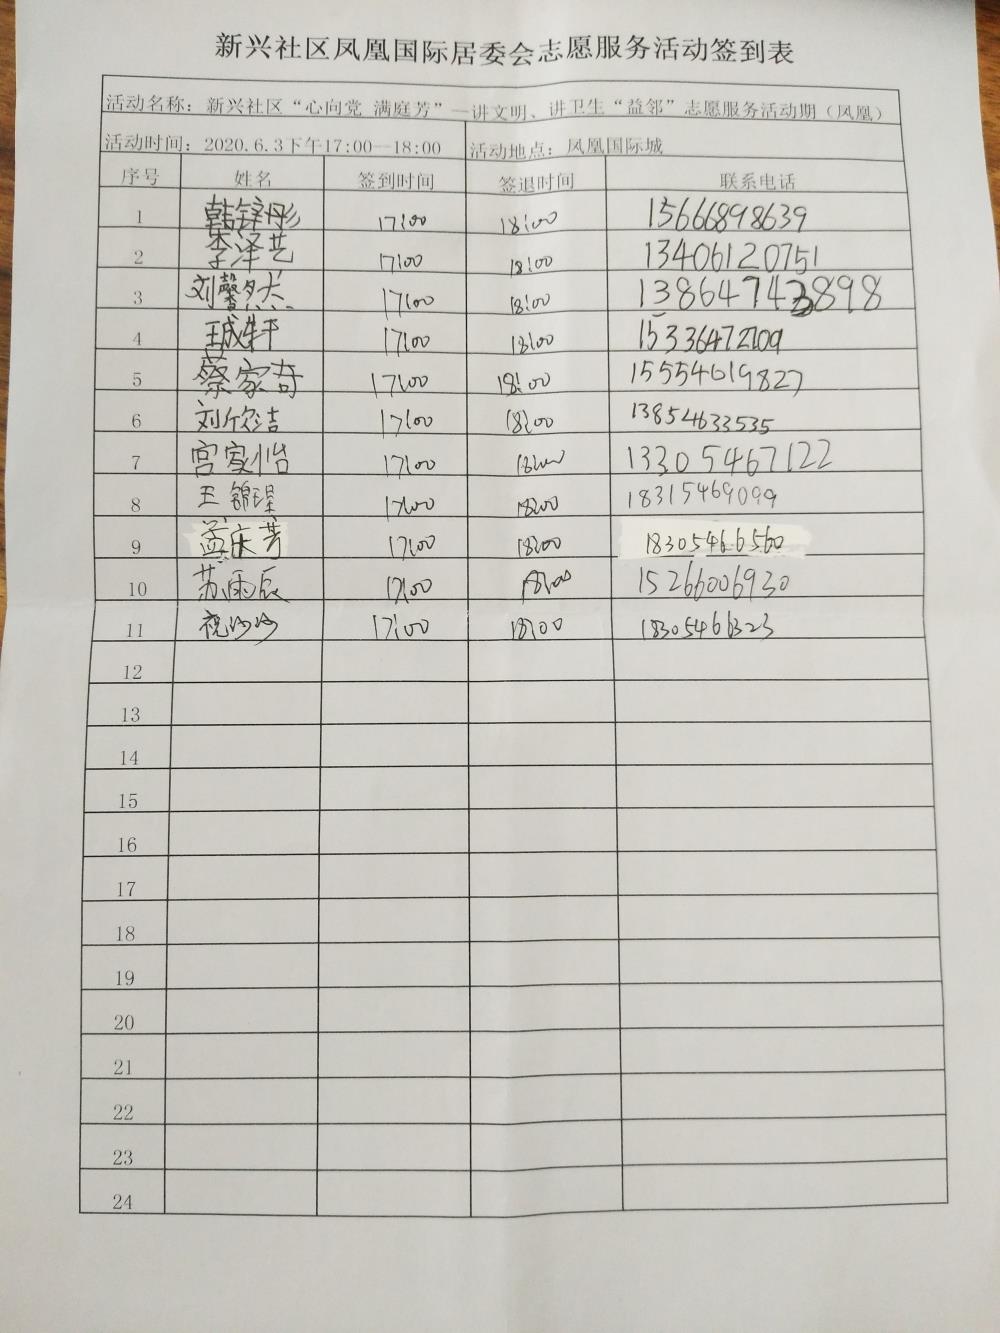 新兴社区凤凰国际居委会志愿服务活动签到表
活动名称：新兴社区“心向党 满庭芳”—讲文明、讲卫生“益邻”志愿服务活动期（凤凰）
活动时间：2020.6.3下午17:00--18:00 活动地点：凤凰国际城
序号 姓名 签到时间 签退时间 联系电话
1 韩锌彤 17:00 18:00 15666898639
2 李泽艺 17:00 18:00 13406120751
3 刘馨然 17:00 18:00 13864743898
4 王诚轩 17:00 18:00 15336472109
5 蔡家奇 17:00 18:00 15554619827
6 刘欣洁 17:00 18:00 13854633535
7 宫家怡 17:00 18:00 13305467122
8 王锦瑆 17:00 18:00 18315469099
9 孟庆芳 17:00 18:00 18305466560
10 苏雨辰 17:00 18:00 15266006930
11 祝沙沙 17:00 18:00 18305466323
12
13
14
15
16
17
18
19
20
21
22
23
24